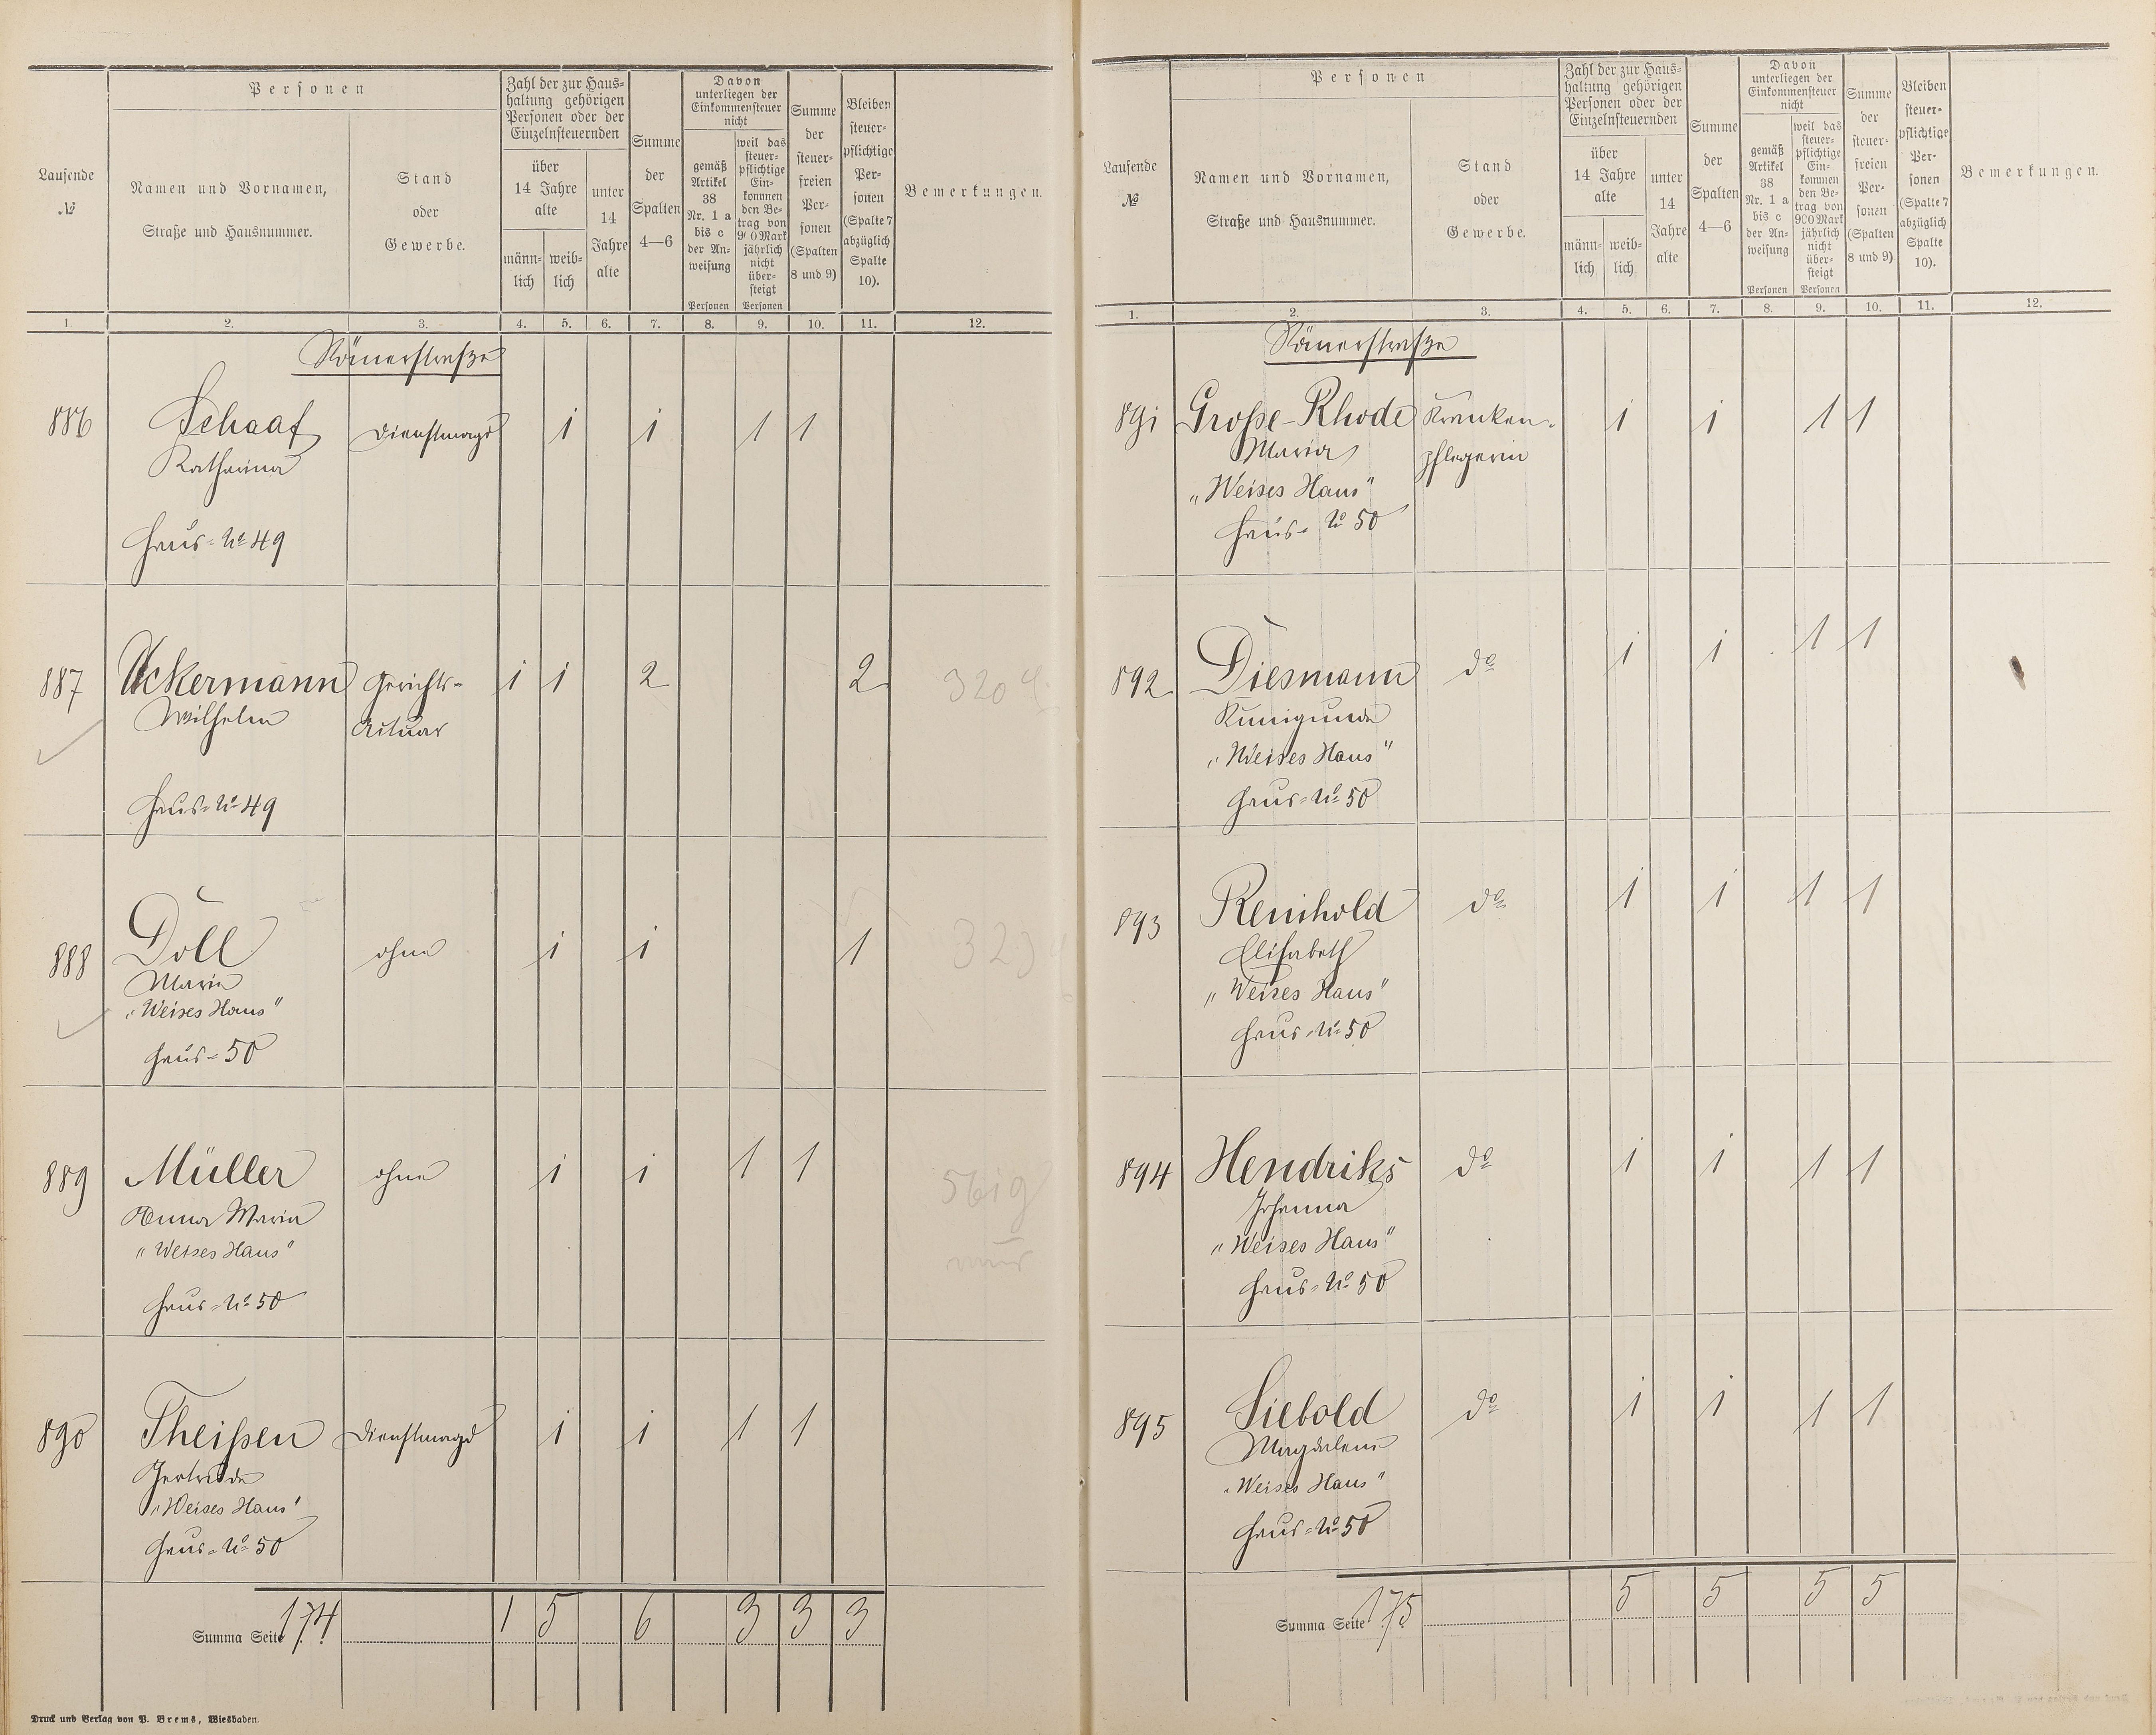 Personen
Zahl der zur Haus-
haltung gehörigen
Personen oder der
Einzelnsteuernden
Davon
unterliegen der
Einkommensteuer
nicht
Laufende
№
Namen und Vornamen,
Straße und Hausnummer.
Stand
oder
Gewerbe.
über
14 Jahre
alte
männ-
lich
weib-
lich
unter
14
Jahre
alte
Summe
der
Spalten
4—6
gemäß
Artikel
38
Nr. 1 a
bis c
der An-
weisung
Personen
weil das
steuer-
pflichtige
Ein-
kommen
den Be-
trag von
900 Mark
jährlich
nicht
über-
steigt
Personen
Summe
der
steuer-
freien
Per-
sonen
(Spalten
8 und 9)
Bleiben
steuer-
pflichtige
Per-
sonen
(Spalte 7
abzüglich
Spalte
10).
Bemerkungen.
1. 2. 3. 4. 5. 6. 7. 8. 9. 10. 11. 12.
Römerstraße
886 Schaaf Dienstmagd 1 1 1 1
Katharina
Haus-No 49
887 Ackermann Gerichts- 1 1 2 2
Wilhelm Actuar
Haus-No 49
888 Doll ohne 1 1 1
Maria
"Weises Haus"
Haus-50
889 Müller ohne 1 1 1 1
Anna Maria
"Weises Haus"
Haus-No 50
890 Theißen Dienstmagd 1 1 1 1
Gertrude
"Weises Haus"
Haus-No 50
Summa Seite 174 1 5 6 3 3 3
Druck und Verlag von P. Brems, Wiesbaden.
Personen
Zahl der zur Haus-
haltung gehörigen
Personen oder der
Einzelnsteuernden
Davon
unterliegen der
Einkommensteuer
nicht
Laufende
№
Namen und Vornamen,
Straße und Hausnummer.
Stand
oder
Gewerbe.
über
14 Jahre
alte
männ-
lich
weib-
lich
unter
14
Jahre
alte
Summe
der
Spalten
4—6
gemäß
Artikel
38
Nr. 1 a
bis c
der An-
weisung
Personen
weil das
steuer-
pflichtige
Ein-
kommen
den Be-
trag von
900 Mark
jährlich
nicht
über-
steigt
Personen
Summe
der
steuer-
freien
Per-
sonen
(Spalten
8 und 9)
Bleiben
steuer-
pflichtige
Per-
sonen
(Spalte 7
abzüglich
Spalte
10).
Bemerkungen.
1. 2. 3. 4. 5. 6. 7. 8. 9. 10. 11. 12.
Römerstraße
891 Große-Rhode Kranken- 1 1 1 1
Maria pflegerin
"Weises Haus"
Haus-No 50
892 Diesmann do 1 1 1 1
Kunigunde
"Weises Haus"
Haus-No 50
893 Reinhold do 1 1 1 1
Elisabeth
"Weises Haus"
Haus-No 50
894 Hendriks do 1 1 1 1
Johanna
"Weises Haus"
Haus-No 50
895 Siebold do 1 1 1 1
Magdalena
"Weises Haus"
Haus-No 50
Summa Seite 175 5 5 5 5